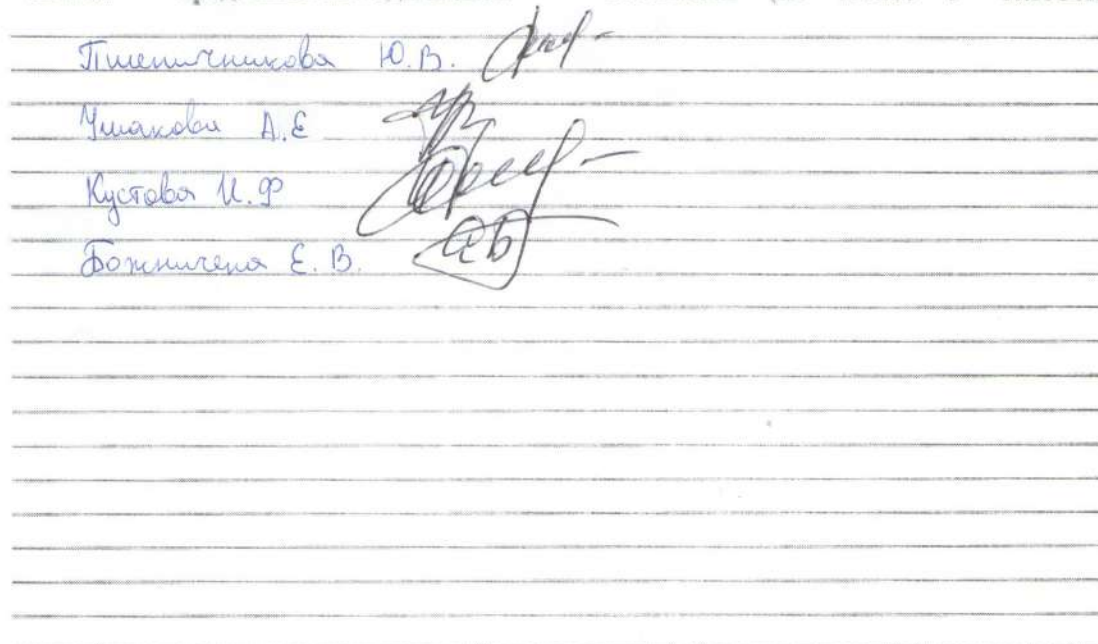 Пшеничникова Ю.В.
Ушакова А.Е
Кустова И.Ф
Божничена Е.В.